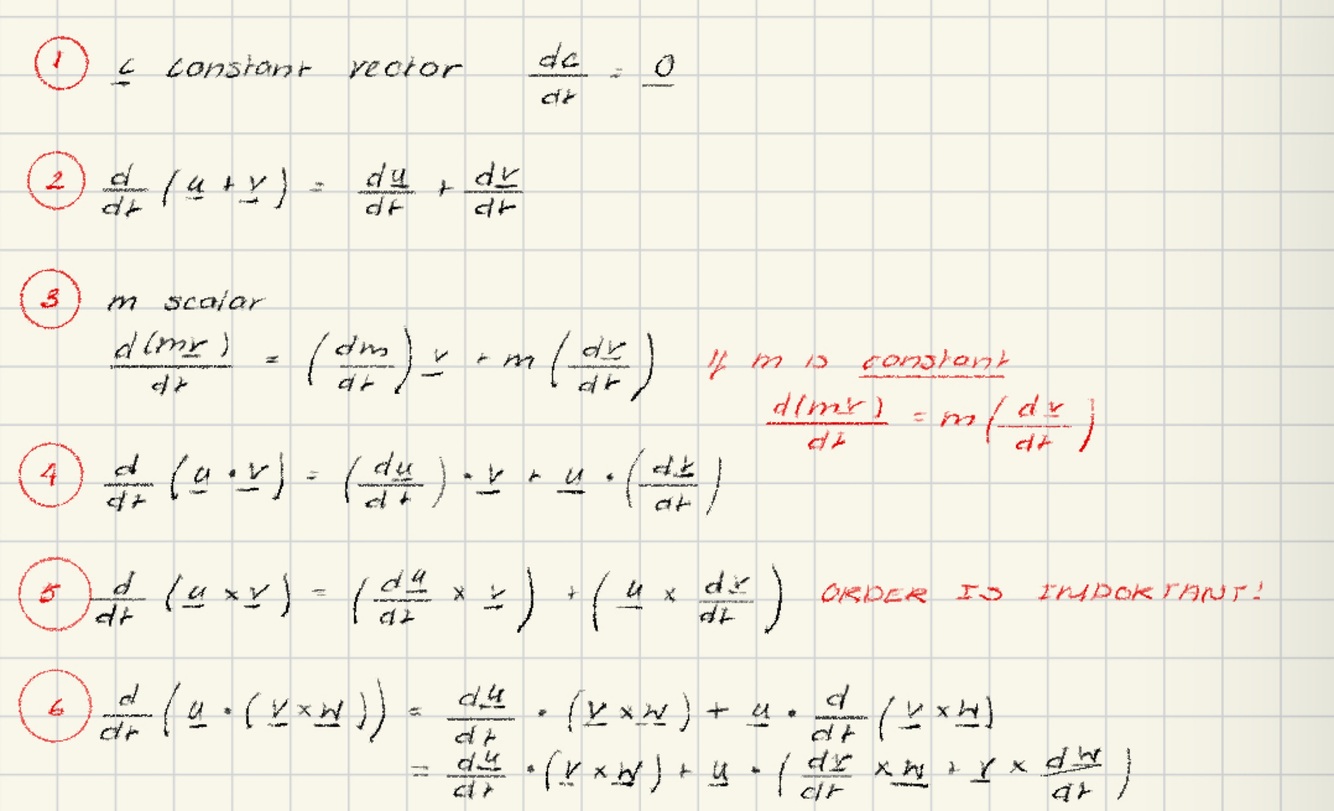 ① c̲ constant vector dc/dt = 0̲
② d/dt (u̲ + v̲) = du̲/dt + dv̲/dt
③ m scalar
d(mv̲)/dt = (dm/dt) v̲ + m (dv̲/dt) If m is constant
d(mv̲)/dt = m (dv̲/dt)
④ d/dt (u̲ · v̲) = (du̲/dt) · v̲ + u̲ · (dv̲/dt)
⑤ d/dt (u̲ × v̲) = (du̲/dt × v̲) + (u̲ × dv̲/dt) ORDER IS IMPORTANT!
⑥ d/dt (u̲ · (v̲ × w̲)) = du̲/dt · (v̲ × w̲) + u̲ · d/dt (v̲ × w̲)
= du̲/dt · (v̲ × w̲) + u̲ · (dv̲/dt × w̲ + v̲ × dw̲/dt)